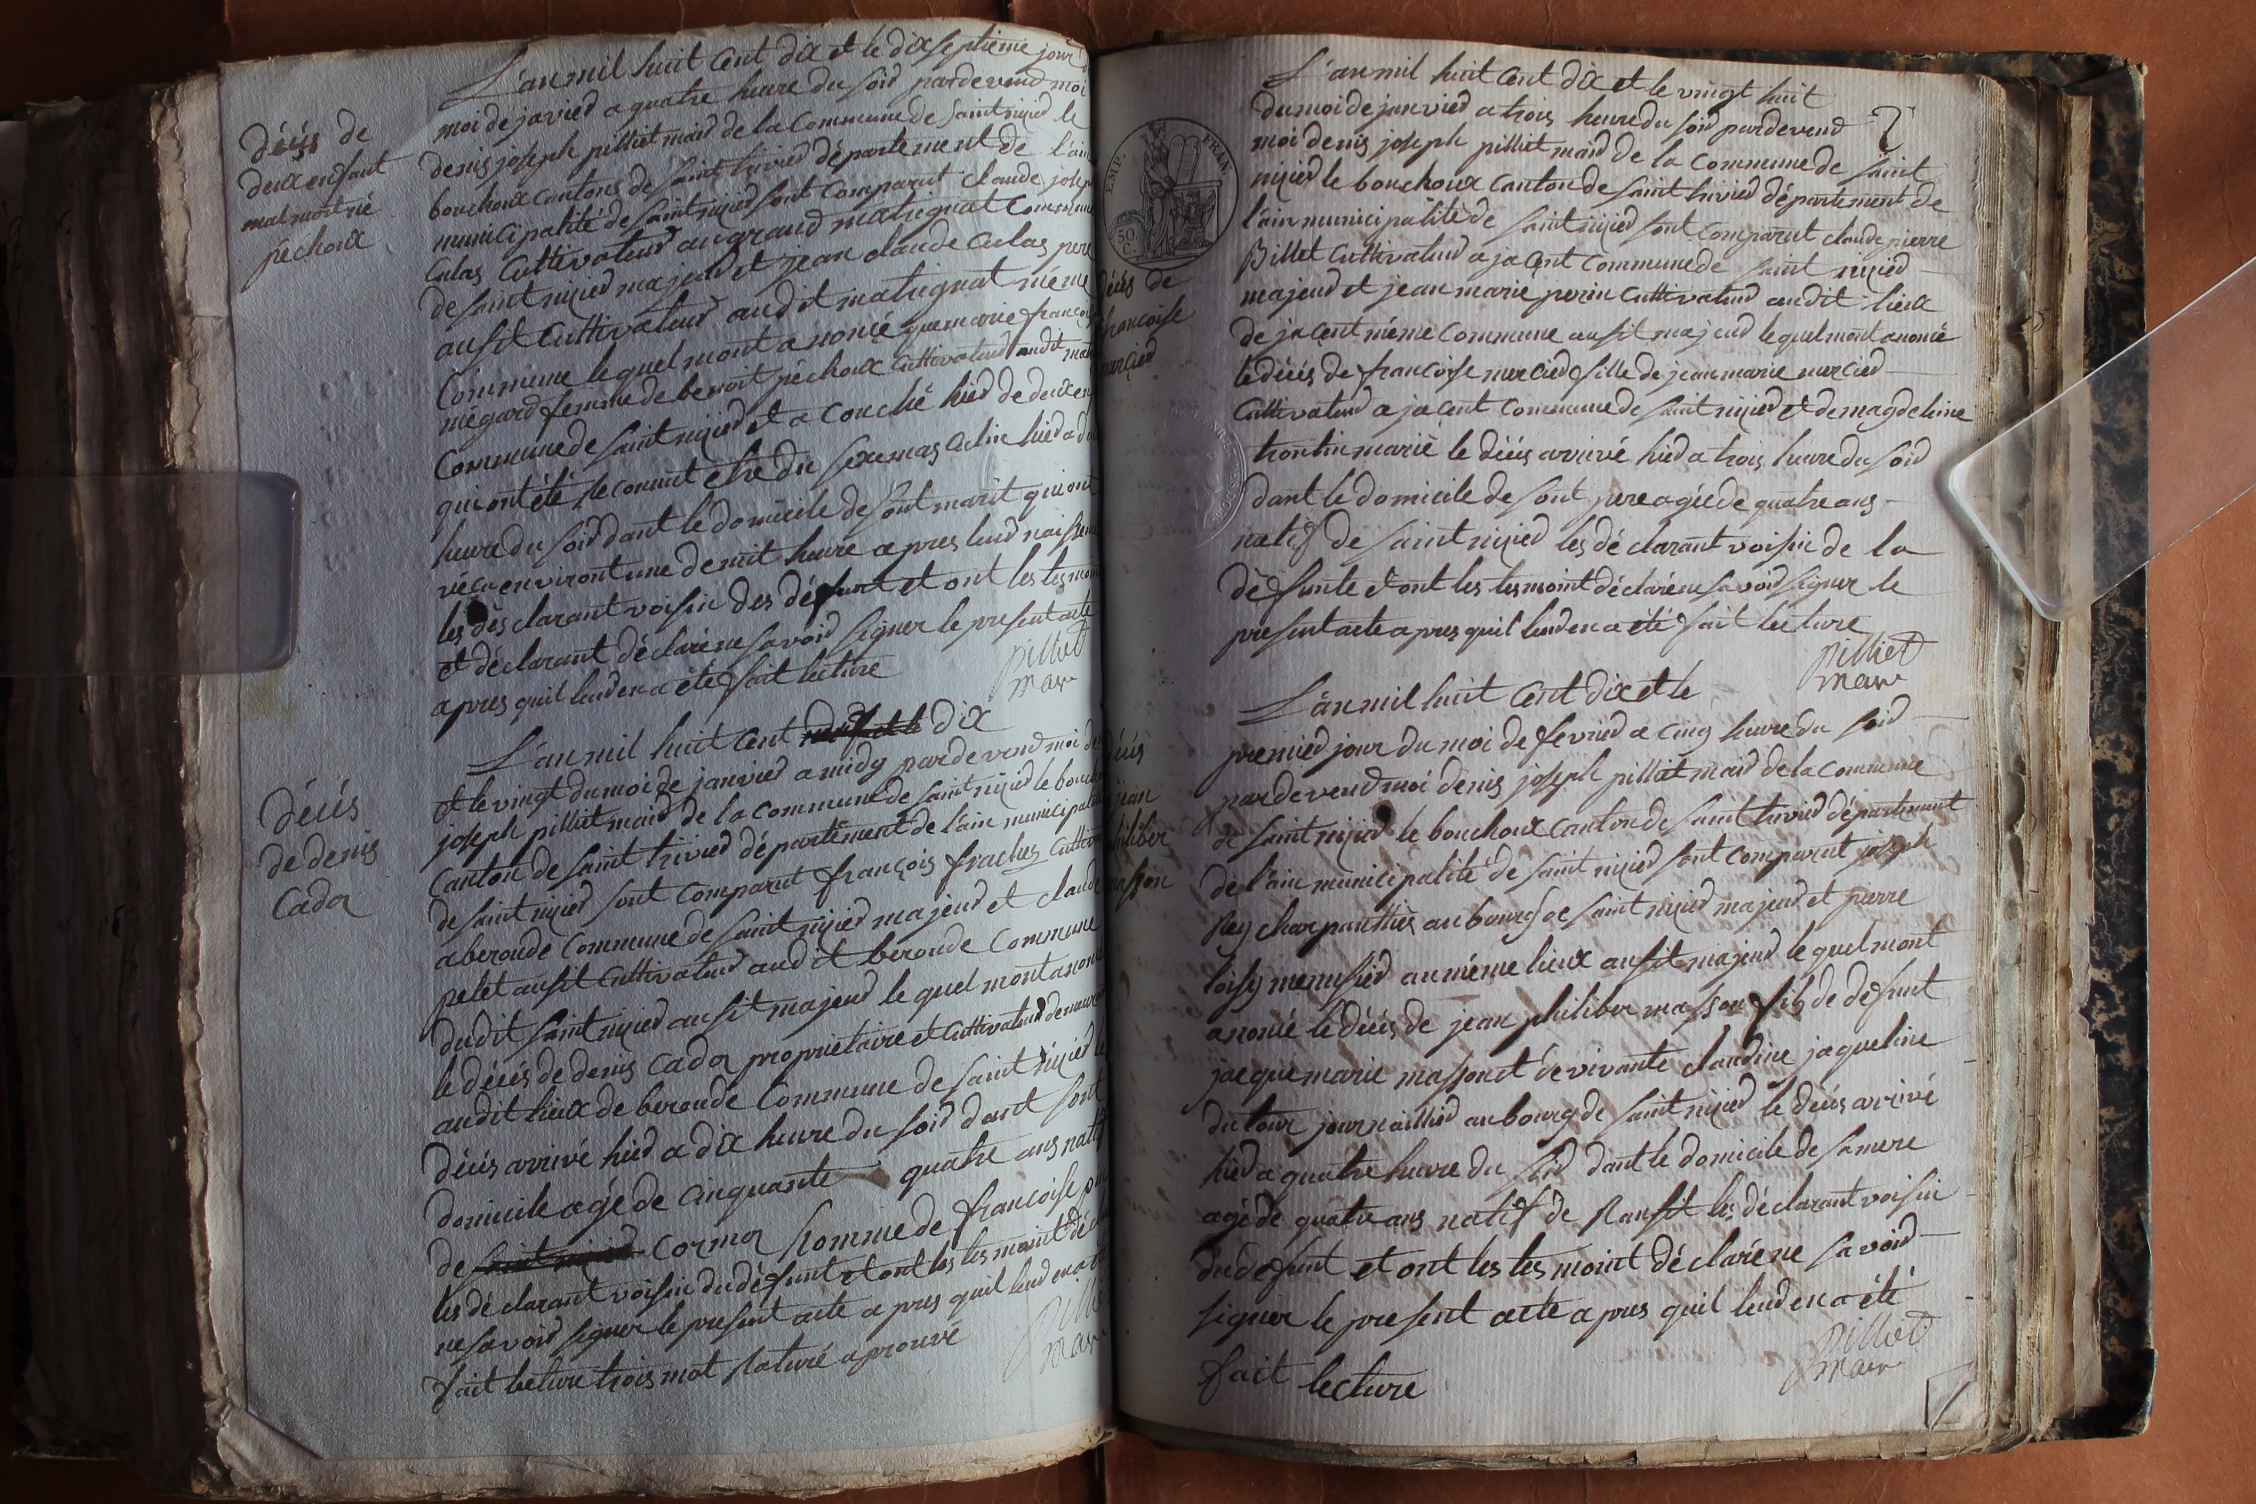 décés de
deux enfant
mal mort né
péchoux
L'an mil huit cent dix et le dixseptieme jour
moi de javier a quatre heure du soir pardevend moi
denis joseph pilliet maire de la Commune de saint nizier le
bouchoux cantons de saint trivier département de l'ain
municipalité de saint nizier sont comparut claude joseph
Culas Cultivateur au grand matrignat commune
de saint nizier majeur et jean claude Culas pere
ausit Cultivateur audit matrignat méme
Commune le quel mont anoncé que marie françoise
mégard femme de benoit péchoux Cultivateur audit
Commune de saint nizier et a couché hier de deux
qui ont été reconnut etre du sexe mas culin hier a
heure du soir dant le domicile de sont marit qui ont
vécu environt une demit heure a pres leur naissence
les dès clarant voisin des défunt et ont les tesmoin
et déclarant déclaré ne savoir signer le present acte
apres quil leur en a été fait lecture
pilliet
maire
décés
de denis
Cador
L'an mil huit Cent dix
et le vingt du moi de janvier a midy pardevend moi
joseph pilliet maire de la commune de saint nizier le
Canton de saint trivier département de l'ain
de saint nizier sont comparut françois
a beroude Commune de saint nizier majeur et claude
petet ausit Cultivateur audit beroude Commune
dudit saint nizier ausit majeur le quel mont anoncé
le décés de denis Cador proprietaire et Cultivateur
audit lieux de beroude Commune de saint nizier
décés arrivé hier a dix heure du soir dant sont
domicile agé de cinquante quatre ans natif
de Cormoz homme de françoise
les dé clarant voisin du défunt et ont les tesmoint
ne savoir signer le present acte a pres quil leur en a
fait lecture trois mot raturé aprouvé
maire
EMP. FRAN.
50 C.
décés de
francoise
mercier
L'an mil huit Cent dix et le vingt huit
du moi de janvier a trois heure du soir pardevend
moi denis joseph pilliet maire de la Commune de saint
nizier le bouchoux Canton de saint trivier département de
l'ain municipalité de saint nizier sont comparut claude pierre
Billet Cultivateur a jacent commune de saint nizier
majeur et jean marie perin Cultivateur audit lieux
de jacent méme Commune ausit majeur le quel mont anoncé
le décés de françoise mercier fille de jean marie mercier
Cultivateur a jacent Commune de saint nizier et de magdeleine
trontin marié le décés arrivé hier a trois heure du soir
dant le domicile de sont pere agée de quatre ans
natif de saint nizier les dé clarant voisin de la
défunte et ont les tesmoint déclaré ne savoir signer le
present acte apres quil leur en a été fait lecture
pilliet
maire
décés
jean
philiber
masson
L'an mil huit Cent dix et le
premier jour du moi de fevrier a cinq heure du soir
pardevend moi denis joseph pilliet maire de la commune
de saint nizier le bouchoux Canton de saint trivier département
de l'ain municipalité de saint nizier sont comparut joseph
Rey charpanthier au bourg de saint nizier majeur et pierre
loisy menusier au méme lieux ausit majeur le quel mont
anoncé le décés de jean philiber masson fils de defunt
jacque marie masson et de vivante claudine jaqueline
dutour journaillier au bourg de saint nizier le décés arrivé
hier a quatre heure du soir dant le domicile de sa mere
agé de quatre ans natif de Ransit les déclarant voisin
du défunt et ont les tes moint déclaré ne savoir
signer le present acte a pres quil leur en a été
fait lecture
pilliet
maire